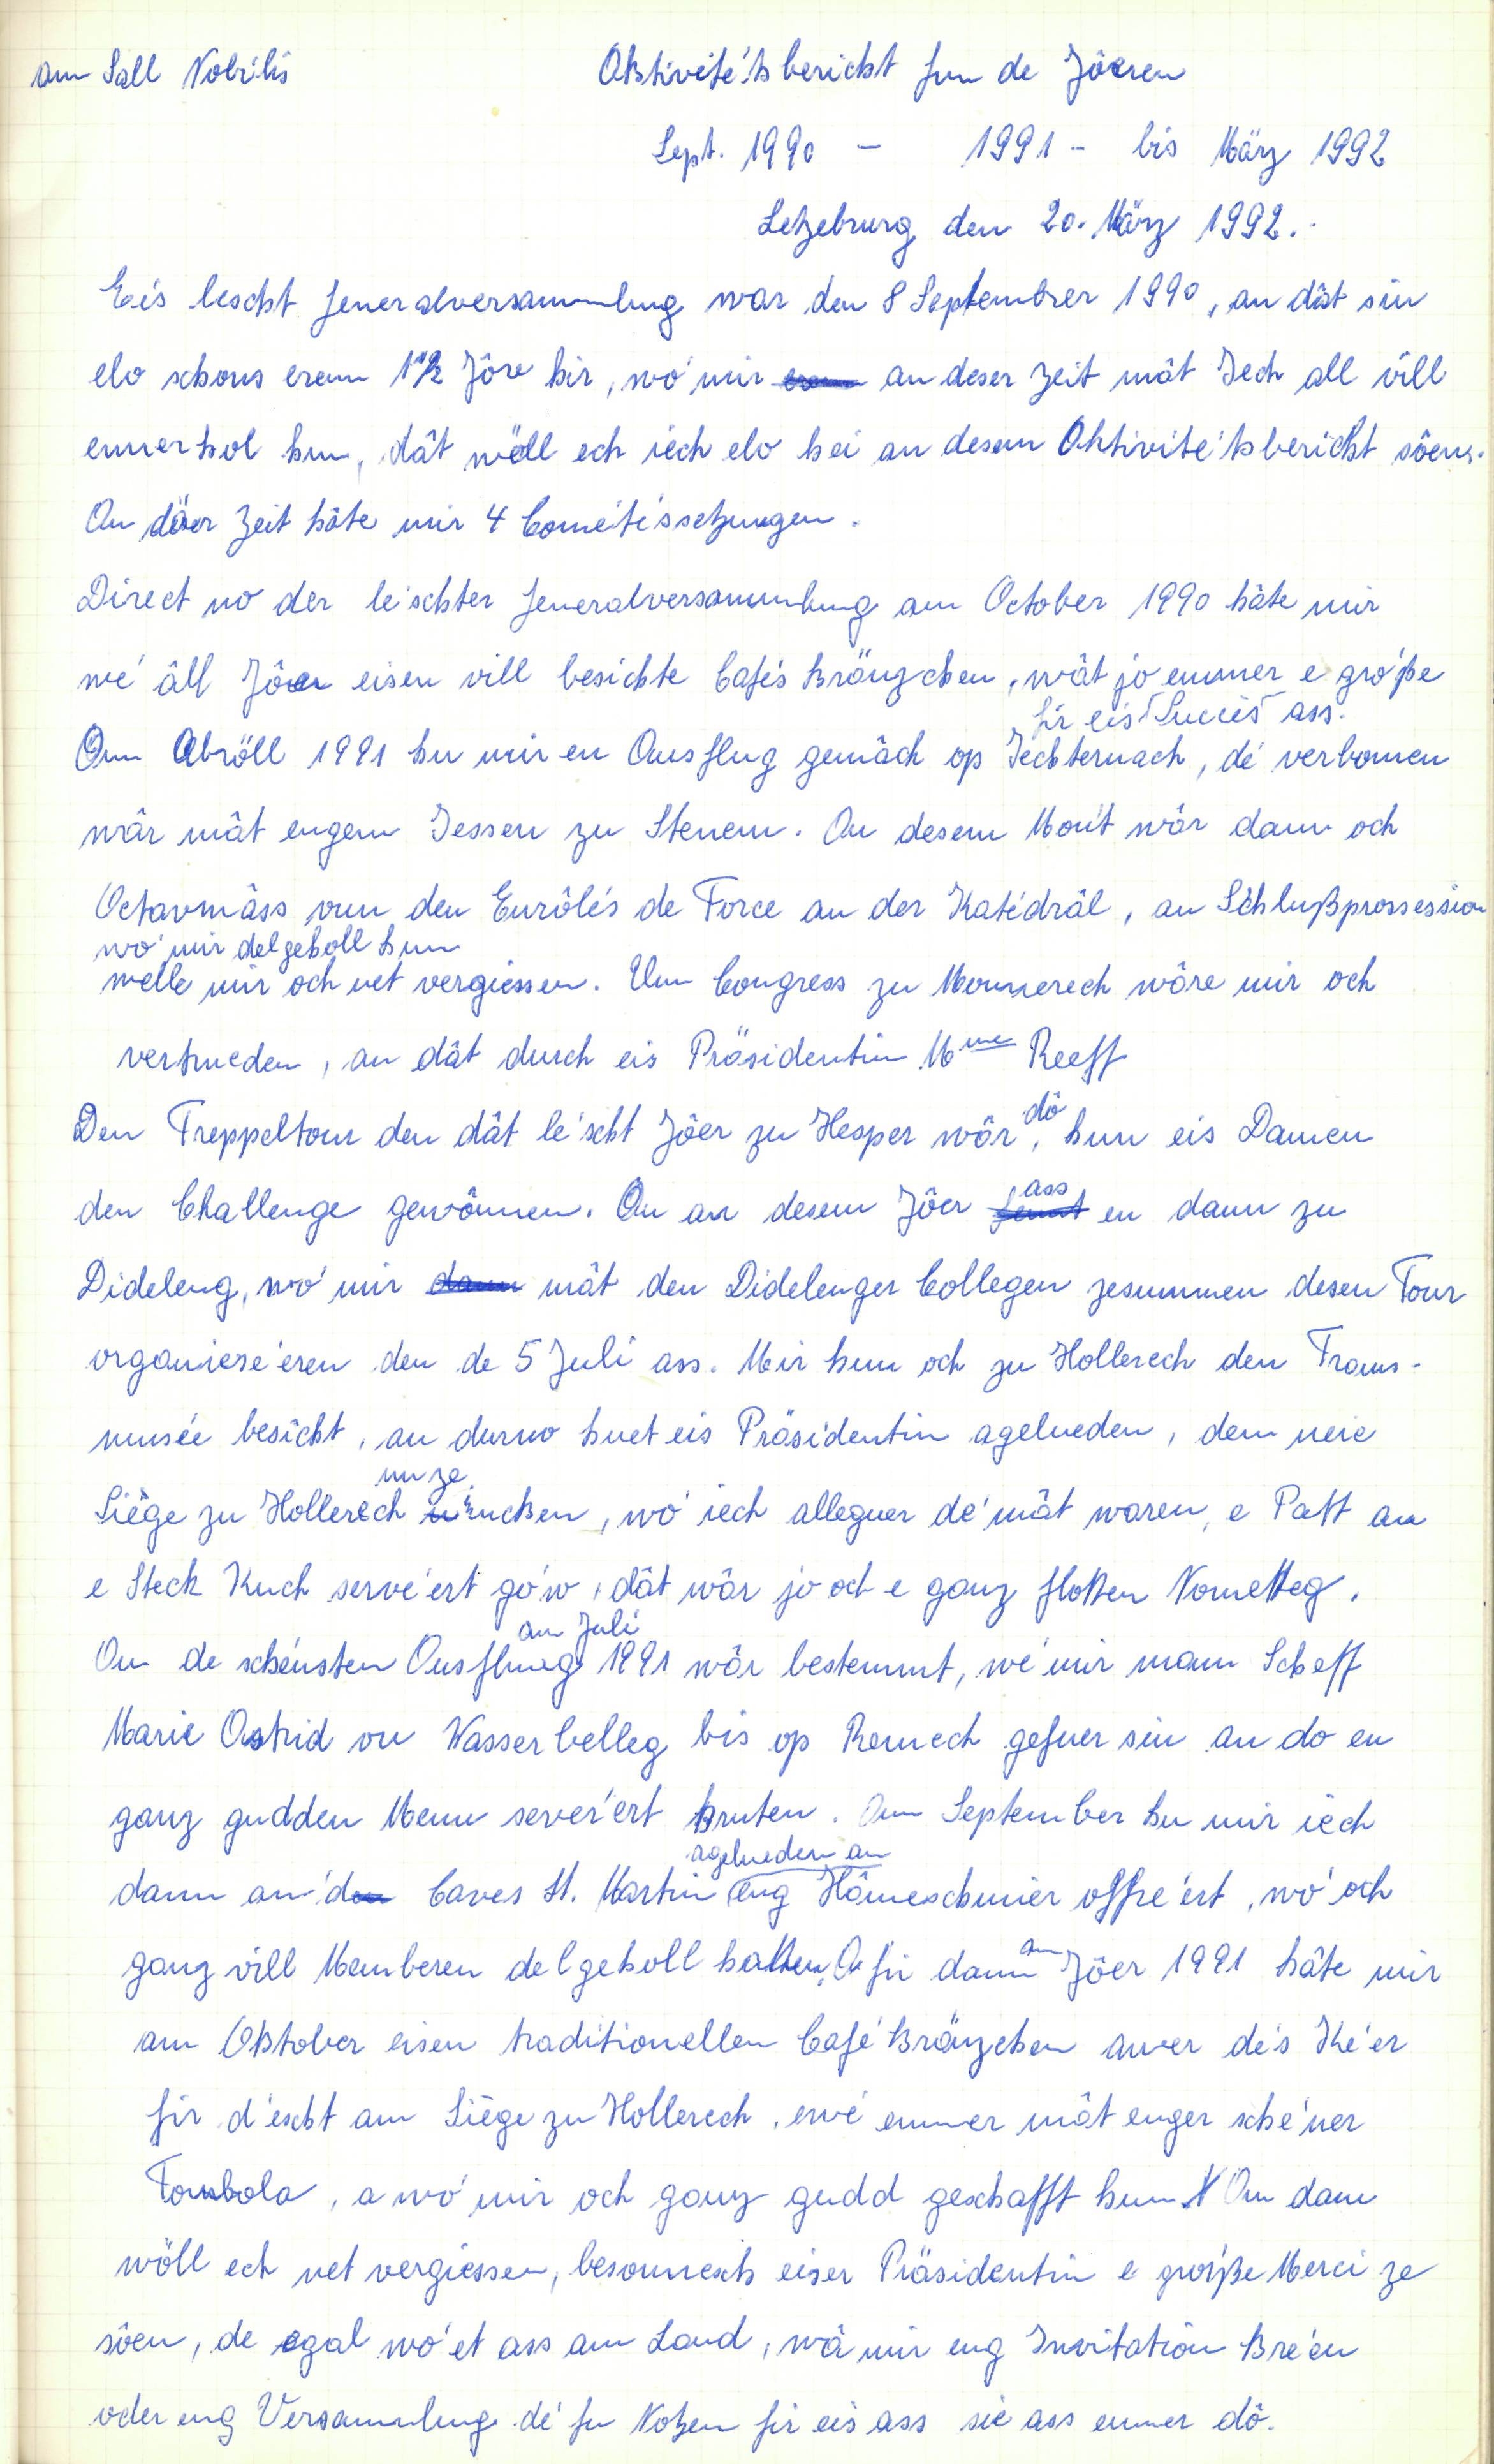 am Sall Nobilis
Aktivite'tsbericht fun de Jôeren
Sept. 1990 - 1991 - bis März 1992
Letzebuerg den 20. März 1992.
Eis lescht Generalversammlung war den 8 September 1990, an dât sin
elo schons erem 1 1/2 Jôre hir, wo' mir an deser Zeit mât Iech all vill
ennerhol hun, dât wöll ech iech elo hei an desem Aktivite'tsbericht sôen.
An däer Zeit hâte mir 4 Comite'issetzungen.
Direct no der le'schter Generalversammlung am October 1990 hâte mir
we' âll Jôer eisen vill besichte Cafe's Kränzchen, wât jo emmer e gro'ße
fir eis Succès ass.
Am Abröll 1991 hu mir en Ausflug gemâch op Iechternach, de' verbonnen
wâr mât engem Iessen zu Stenem. An desem Mont wâr dann och
Octavmâss vun den Enrôlés de Force an der Katedrâl, an Schlußprossession
wo' mir delgeholl hun
welle mir och net vergiessen. Um Congress zu Monnerech wôre mir och
vertrueden, an dât durch eis Präsidentin Mme Reeff
Den Treppeltour den dât le'scht Jôer zu Hesper wôr, dô hun eis Damen
den Challenge gewônnen. An an desem Jôer ass en dann zu
Dideleng, wo' mir mât den Didelenger Collegen zesummen desen Tour
organiese'eren den de 5 Juli ass. Mir hun och zu Hollerech den Trams-
musée besicht, an durno huet eis Präsidentin agelueden, dem neie
Siège zu Hollerech unzekucken, wo' iech alleguer de' mât waren, e Patt an
e Steck Kuch serve'ert go'w, dât wâr jo och e ganz flotten Nomëtteg.
An de sche'nsten Ausflug am Juli 1991 wôr bestemmt, we' mir mam Scheff
Marie Astrid vu Wasserbelleg bis op Remech gefuer sin an do en
ganz gudden Menu server'ert kruten. Am September hu mir iech
dann an d' Caves St. Martin agelueden an eng Hômeschmier offre'ert, wo' och
ganz vill Memberen delgeholl hatten. A fir dann am Jôer 1991 hâte mir
am Oktober eisen traditionellen Café Kränzchen awer de's Ke'er
fir d'escht am Siège zu Hollerech, ewe' emmer mât enger sche'ner
Tombola, a wo' mir och ganz gudd geschafft hun. An dann
wöll ech net vergiessen, besonnesch eiser Präsidentin e gro'ße Merci ze
sôen, de egal wo' et ass am Land, wâ mir eng Invitatiôn kre'en
oder eng Versammlung de' fu Notzen fir eis ass sie ass emmer dô.